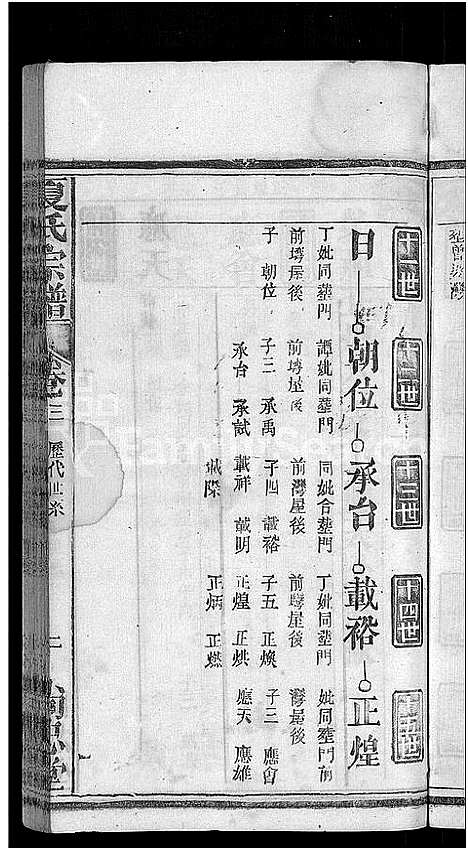 十一世
十二世
十三世
十四世
十五世
日
朝位
承台
載裕
正煌
丁妣同塟門
前塆屋後
子 朝位
譚妣同塟門
前塆屋後
子三 承禹
承台 承試
同妣合塟門
前灣屋後
子四 載裕
載祥 載明
載際
丁妣同塟門
前塆屋後
子五 正煥
正煌 正烘
正炳 正燃
妣同塟門前
灣屋後
子三 應會
應天 應雄
夏氏宗譜
卷三 歷代世系
二